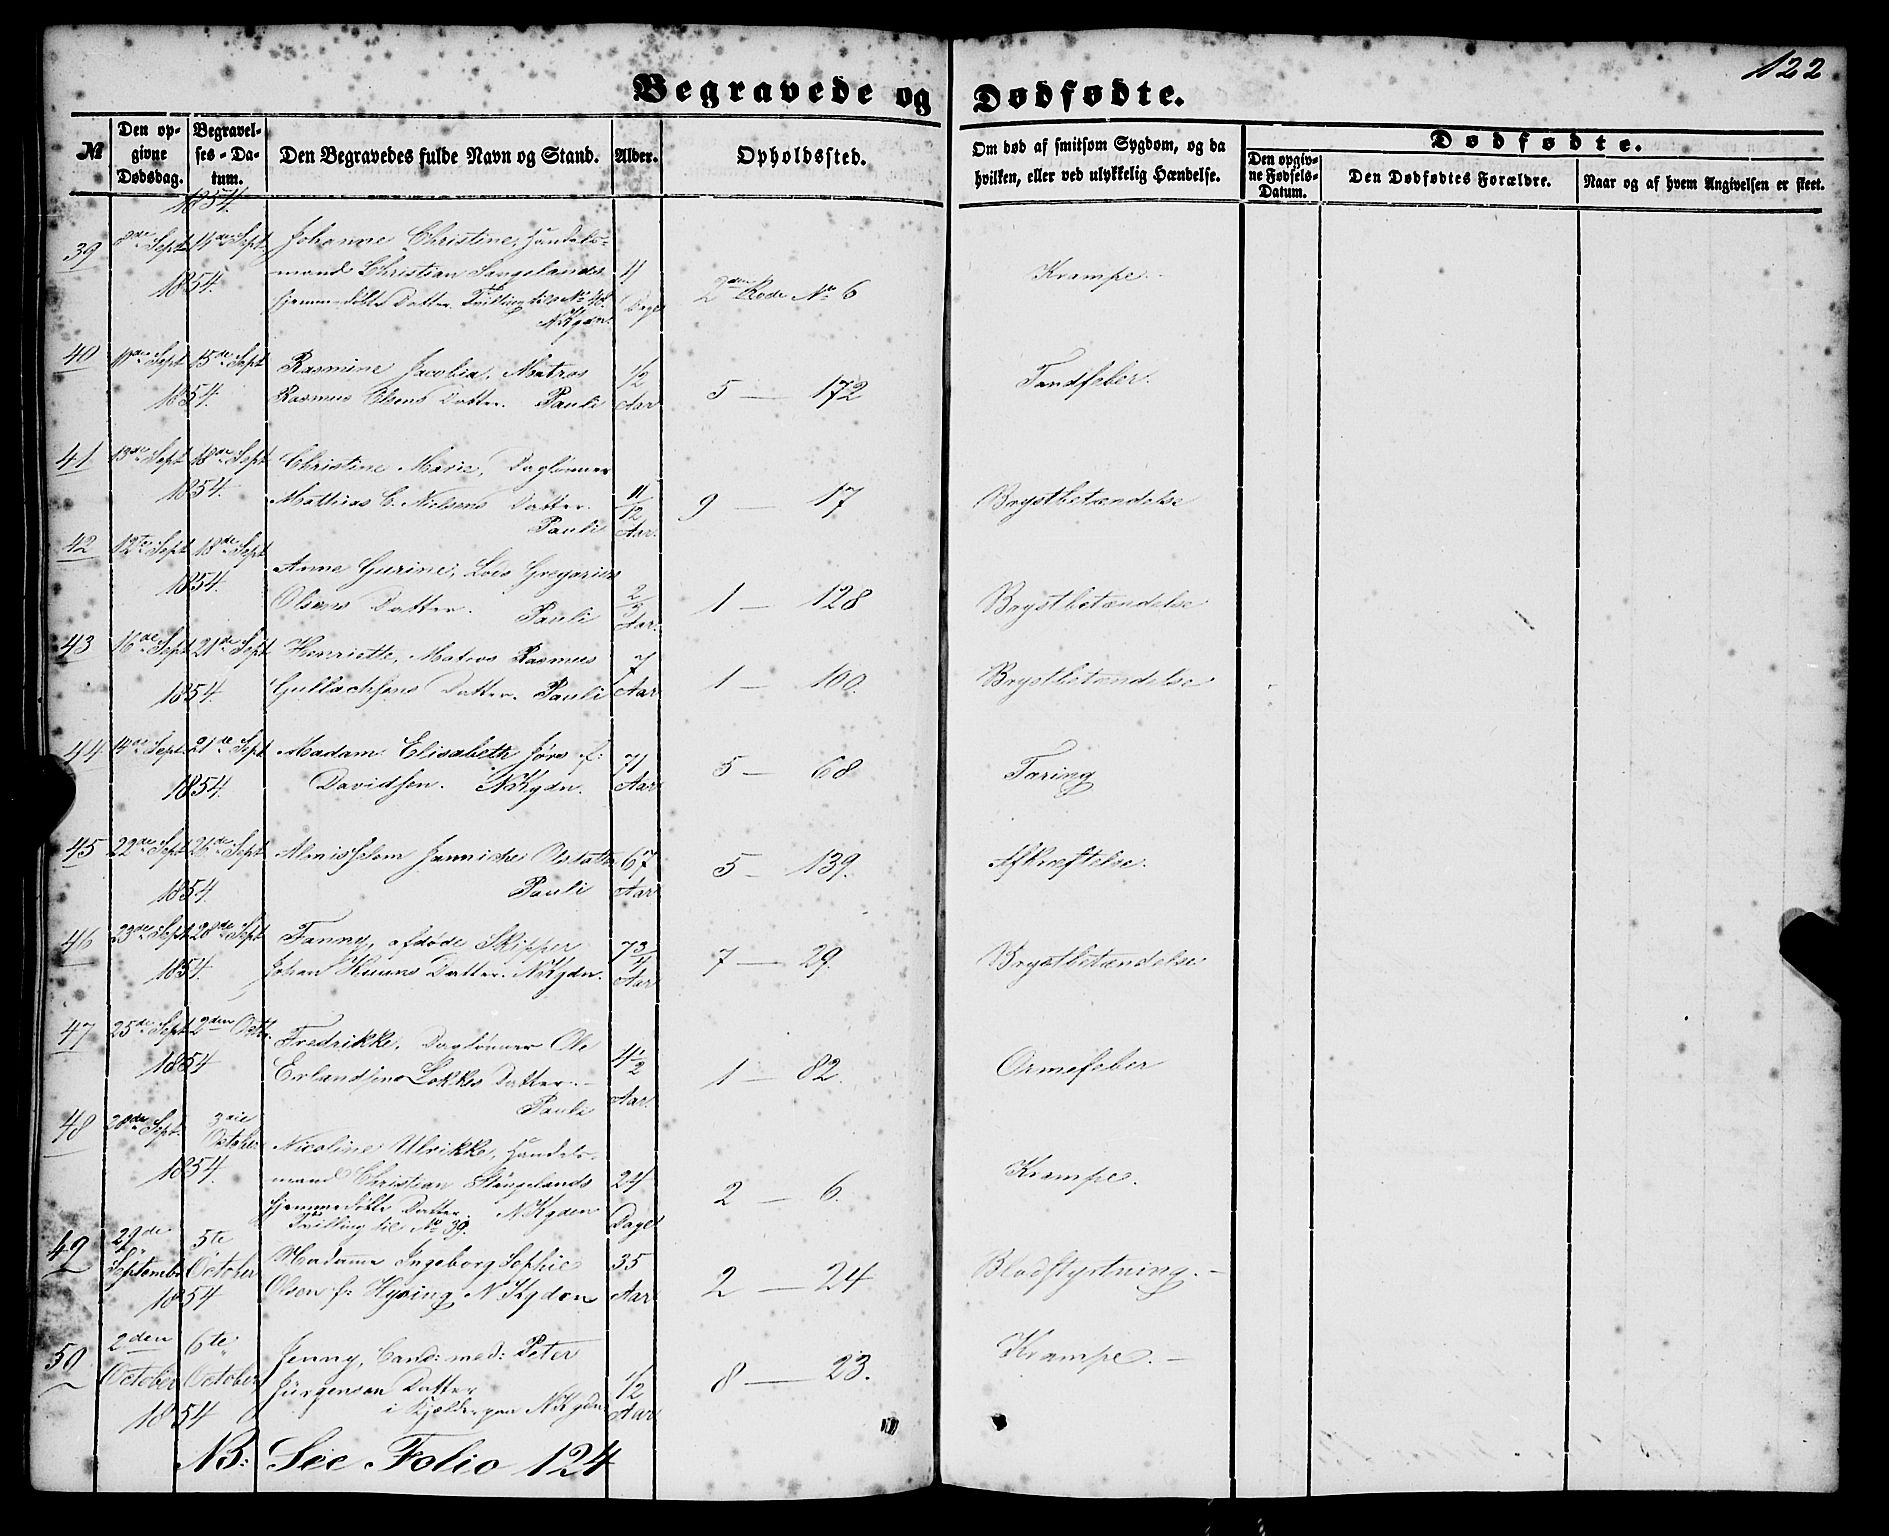 122
Begravede og Dødfødte.
№
Den opgivne Dødsdag.
Begravelses-Datum.
Den Begravedes fulde Navn og Stand.
Alder.
Opholdssted.
Om død af smitsom Sygdom, og da hvilken, eller ved ulykkelig Hændelse.
Dødfødte.
Den opgivne Fødsels-Datum.
Den Dødfødtes Forældre.
Naar og af hvem Angivelsen er skeet.
1854.
39 8de Sept 14de Sept Johanne Christine, Handels-
1854. mand Christian Stangelands 4 Krampe.
hjemmedøbte Datter. Tvilling til No 48. Dage 2den Rode No 6
NKgdn.
40 11de Sept 15de Sept Rasmine Jacobia, Matros 1/2 Tandfeber.
1854. Rasmus Olsens Datter. Pauli Aar 5 — 172
41 13de Sept 18de Sept Christine Marie, Daglønner
1854. Mathias C. Nielsens Datter. 11/12 9 — 17 Brystbetændelse
Pauli Aar.
42 12te Sept 18de Sept
1854. Anne Gurine, Lods Gregarius 2/3
Olsens Datter. Pauli Aar. 1 — 128 Brystbetændelse
43 16de Sept 21de Sept Henriette, Matros Rasmus 7
1854. Gullachsens Datter. Pauli Aar 1 — 100. Brystbetændelse
44 14de Sept. 21de Sept Madam Elisabeth f:
1854. Davidsen. NKgdn. 71 Aar 5 — 68 Tæring
45 22de Sept 26de Sept Almisslem Jannicke 67 5 — 139. Afkræftelse.
1854 Pauli Aar
46 23de Sept 28de Sept Fanny, afdøde Skipper 7 3/4
1854. Johan Datter. NKgdn. Aar 7 — 29. Brystbetændelse
47 25de Sept 2den Octb. Fredrikke, Daglønner Ole 4 1/2
1854 Erlandsens Datter. Aar. 1 — 82. Ormefeber
Pauli
48 28de Sept. 3die October Nicoline Ulrikke, Handels-
1854. mand Christian Stangelands 24 2 — 6. Krampe.
hjemmedøbte Datter. NKgdn Dage
Tvilling til No 39.
49 29de September 5te October Madame Ingeborg Sophie 35
1854 Olsen f: Hysing NKgdn Aar 2 — 24 Blodstyrtning.
50 2den October 6te October Jenny, Cand: med: Peter
1854 Jürgensen Datter 1/2 Aar 8 — 23. Krampe.
i Kjelderen paa NKgdn
NB: See Folio 124